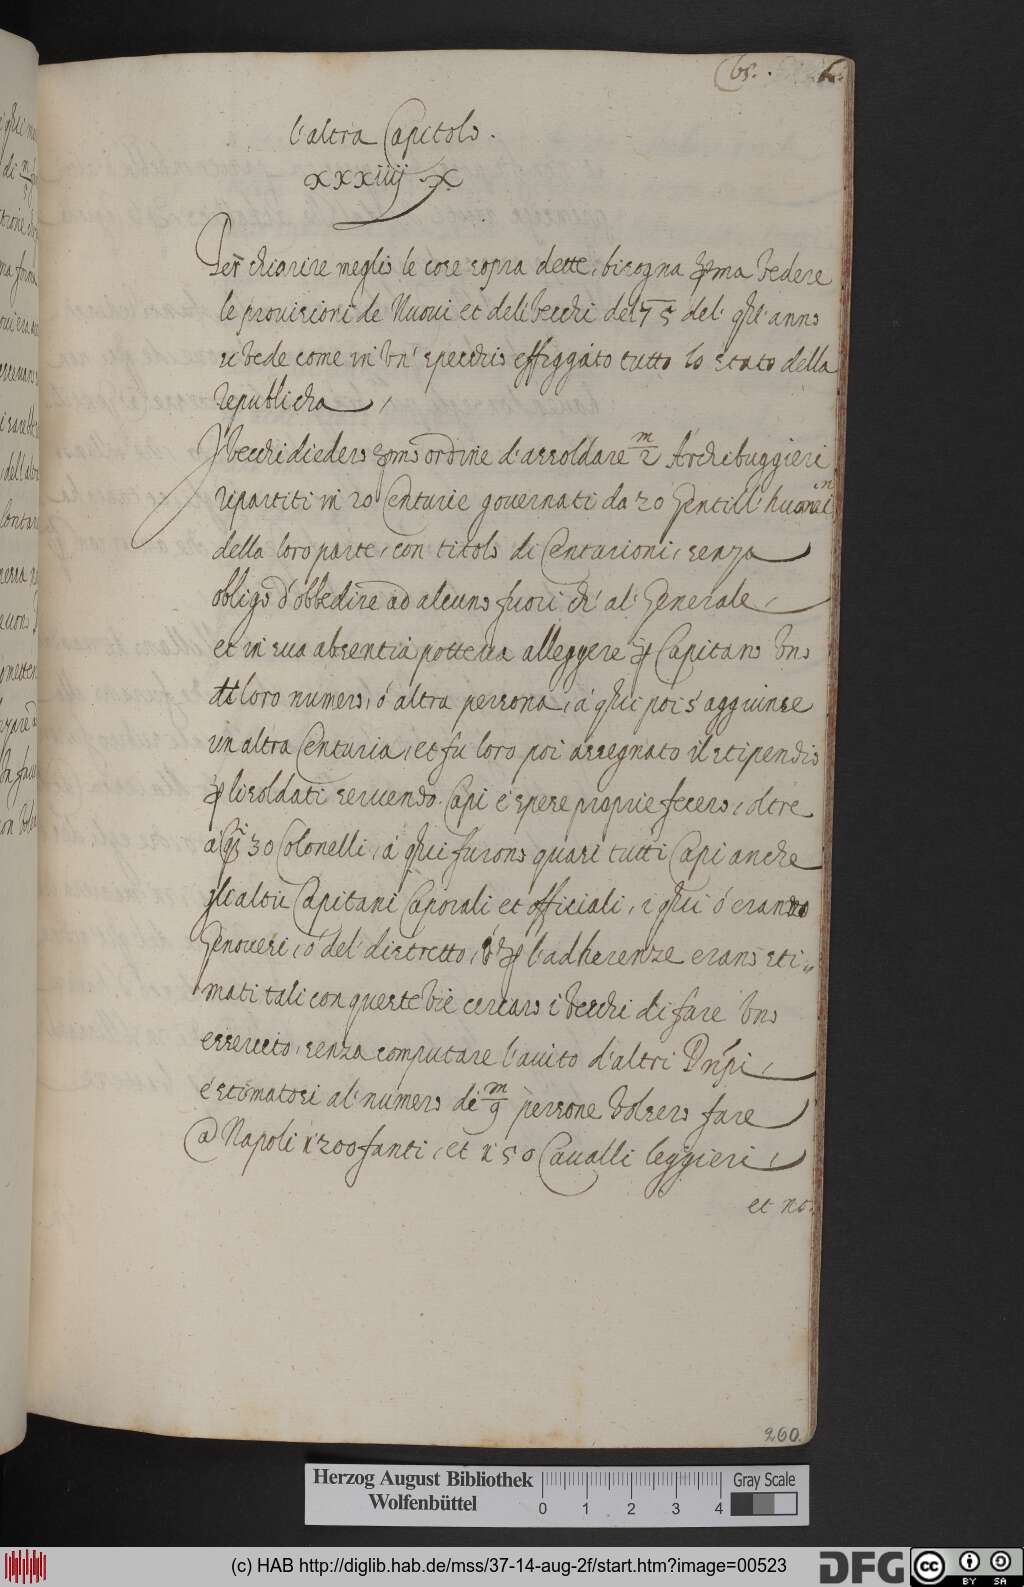 65.
l'altra Capitolo.
xxxiiij
Per chiarire meglio le cose sopra dette, bisogna pma vedere
le provisioni de Nuovi et deli vecchi del 75 del' qĺ' anno
si vede come in' vn' specchio effiggiato tutto lo stato della
republicha,
I vecchi diedero pmo ordine d'assoldare m/2 Archibuggieri
repartiti in 20 Centurie governati da 20 Gentill'huomini
della loro parte, con titolo di Centurioni, senza
obligo d'obbedire ad alcuno fuori ch' al' Generale,
et in sua absentia potteua alleggere p Capitano vno
di loro numero, ó altra persona, á qĺi poi s'aggiunse
un altra Centuria, et fu loro poi assegnato il stipendio
p li soldati servendo. Capi é spese proprie fecero, oltre
á qsti 30 Colonelli, á qĺi furono quasi tutti Capi anche
gli altri Capitani Caporali et officiali, i qĺi ó erano
Genovesi, ó del' distretto, ó p l'adherenze erano sti-
mati tali con queste vie cercaro i vecchi di fare vno
essercito, senza computare l'aiuto d'altri Dnĩpi,
é stimatosi al' numero di m/9 persone volsero fare
a Napoli 1200 fanti, et 150 Cavalli leggieri,
et no.
260.
Herzog August Bibliothek
Wolfenbüttel
0 1 2 3 4
Gray Scale
(c) HAB http://diglib.hab.de/mss/37-14-aug-2f/start.htm?image=00523
DFG
cc BY SA